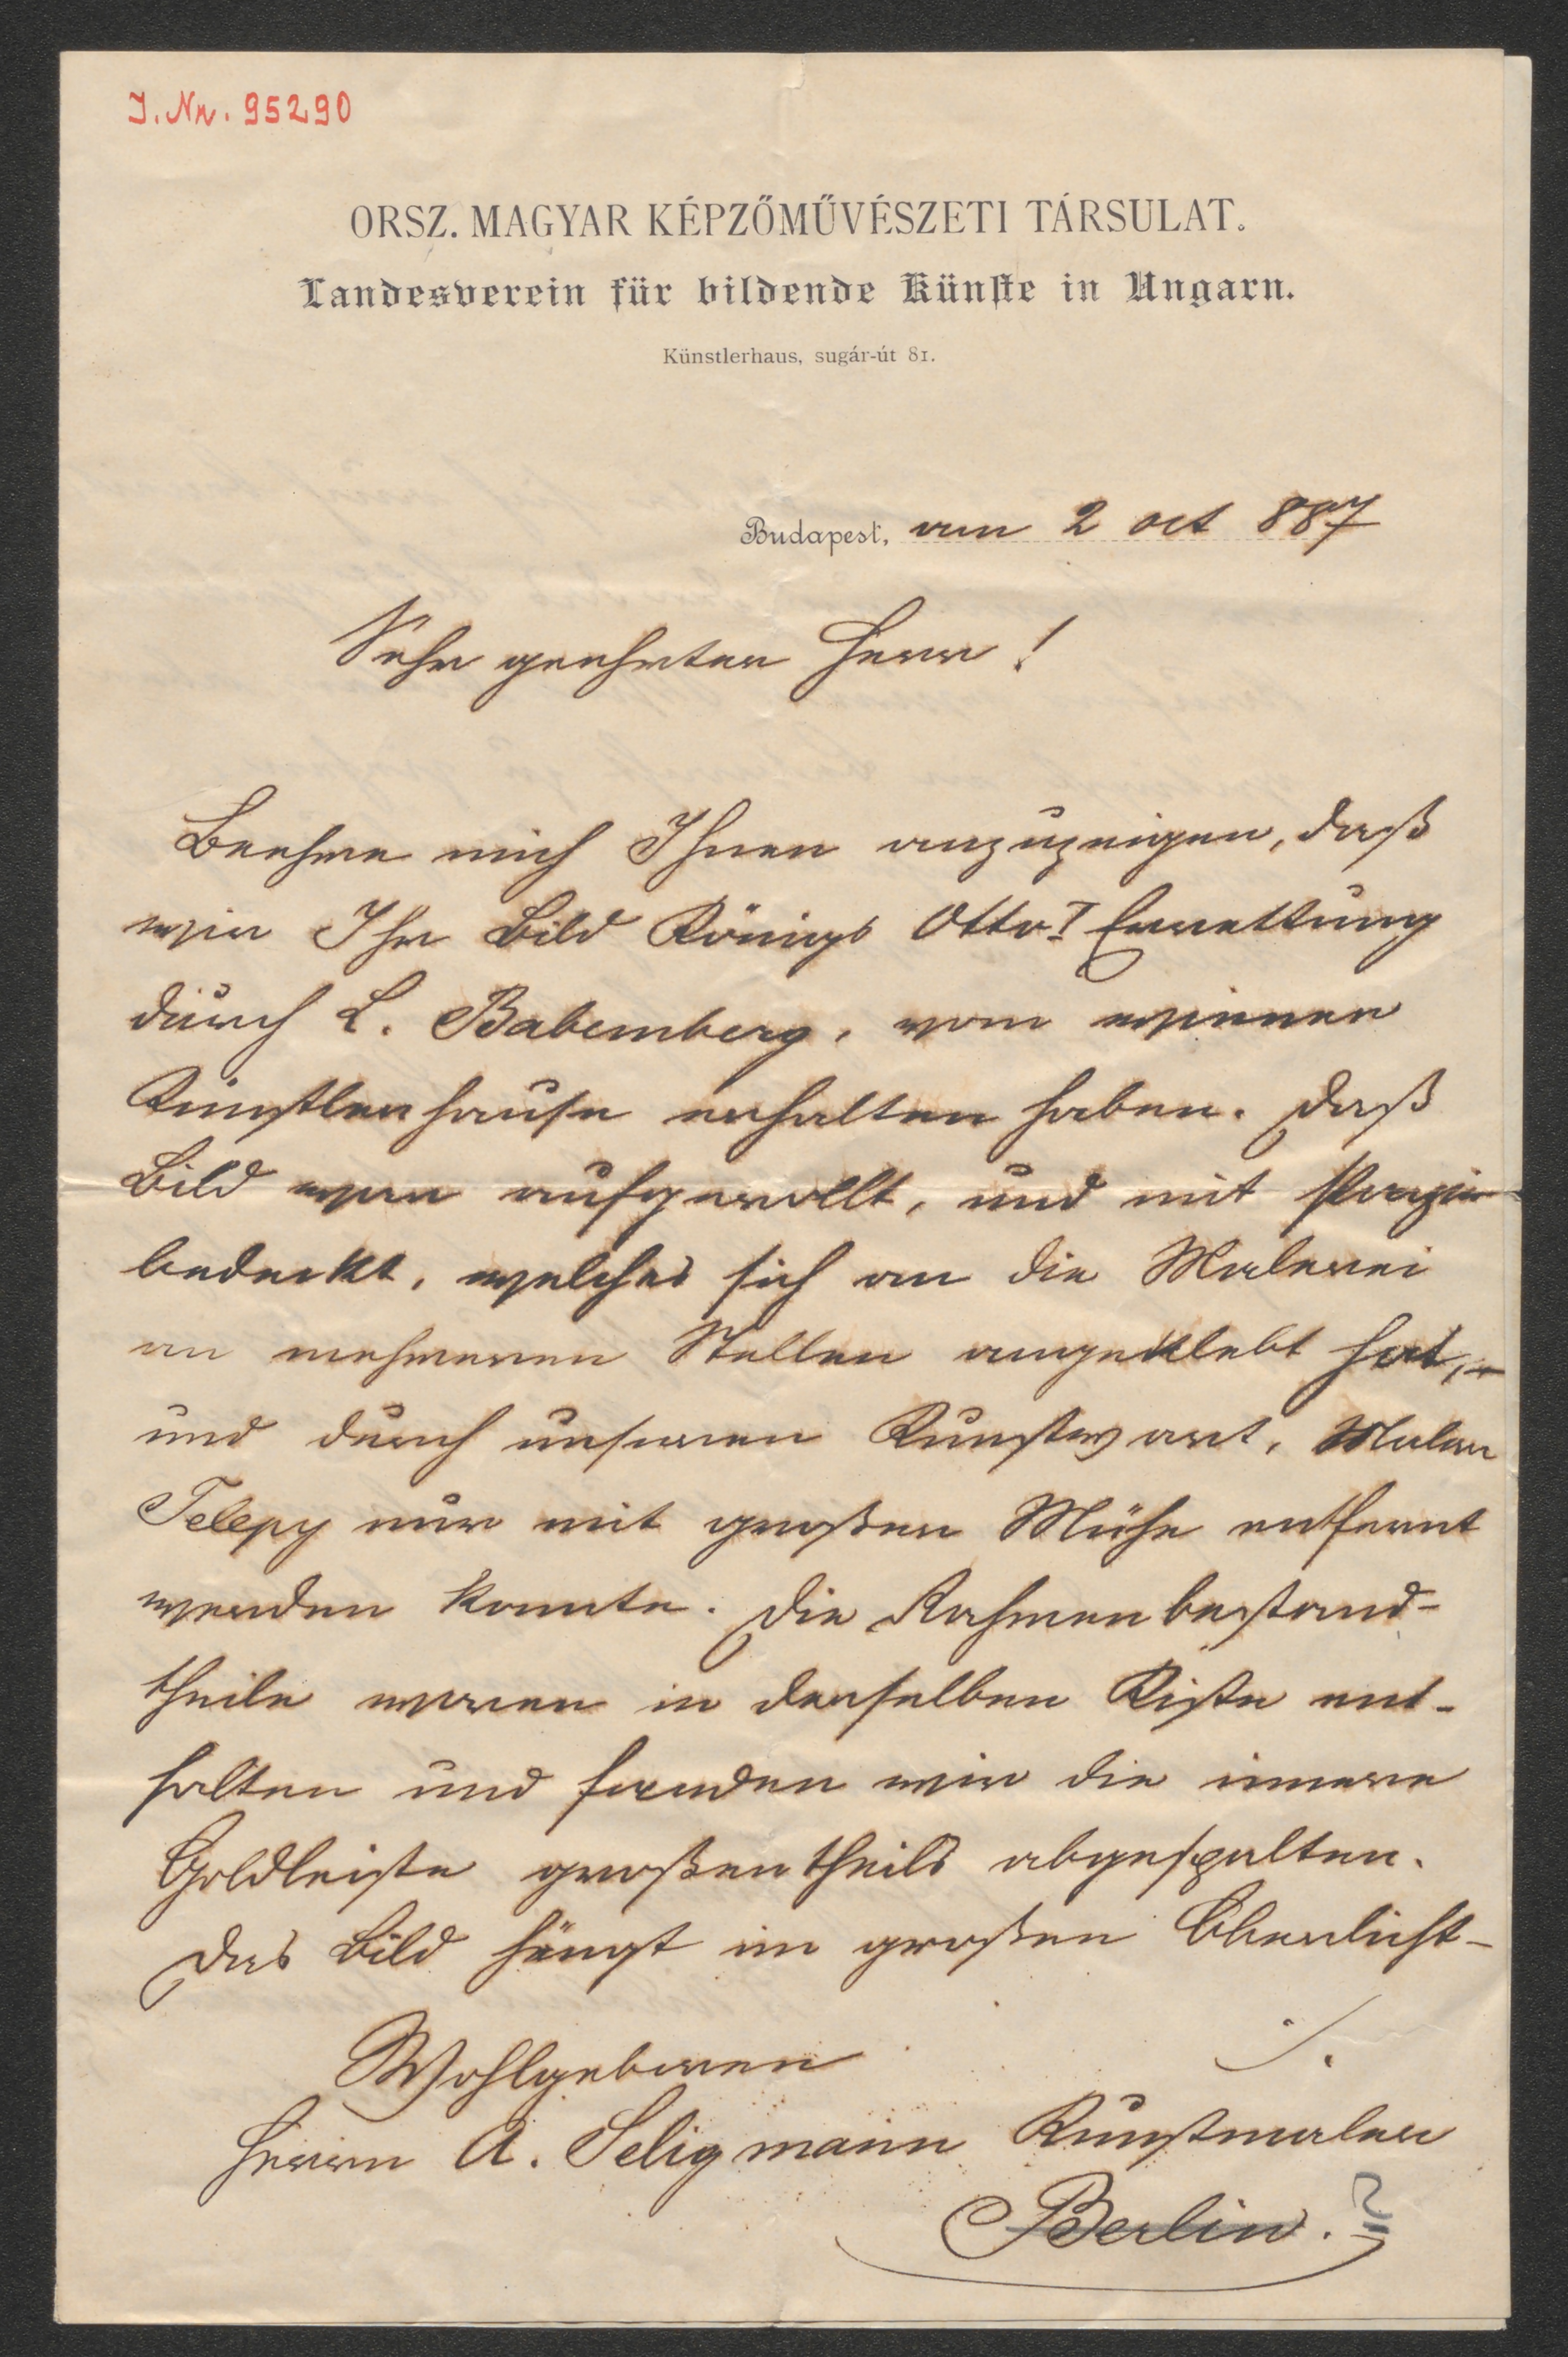 I. Nr. 95290
ORSZ. MAGYAR KÉPZŐMŰVÉSZETI TÁRSULAT.
Landesverein für bildende Künste in Ungarn.
Künstlerhaus, sugár-út 81.
Budapest, am 2 oct 887
Sehr geehrter Herr!
Beehre mich Ihnen anzuzeigen, daß
wir Ihr Bild Königs Otto I Errettung
durch L. Babemberg, vom wiener
Künstlerhause erhalten haben. Daß
Bild war aufgerollt, und mit Papier
bedeckt, welches sich an die Malerei
an mehreren Stellen angeklebt hat,
und durch unseren Kunstwart, Maler
Telepy nur mit großer Mühe entfernt
werden konnte. Die Rahmenbestand-
theile waren in derselben Kiste ent-
halten und fanden wir die innere
Goldleiste großentheils abgespalten.
Das Bild hängt im großen Oberlicht-
./.
Wohlgeboren
Herrn A. Seligmann Kunstmaler
Berlin. ?